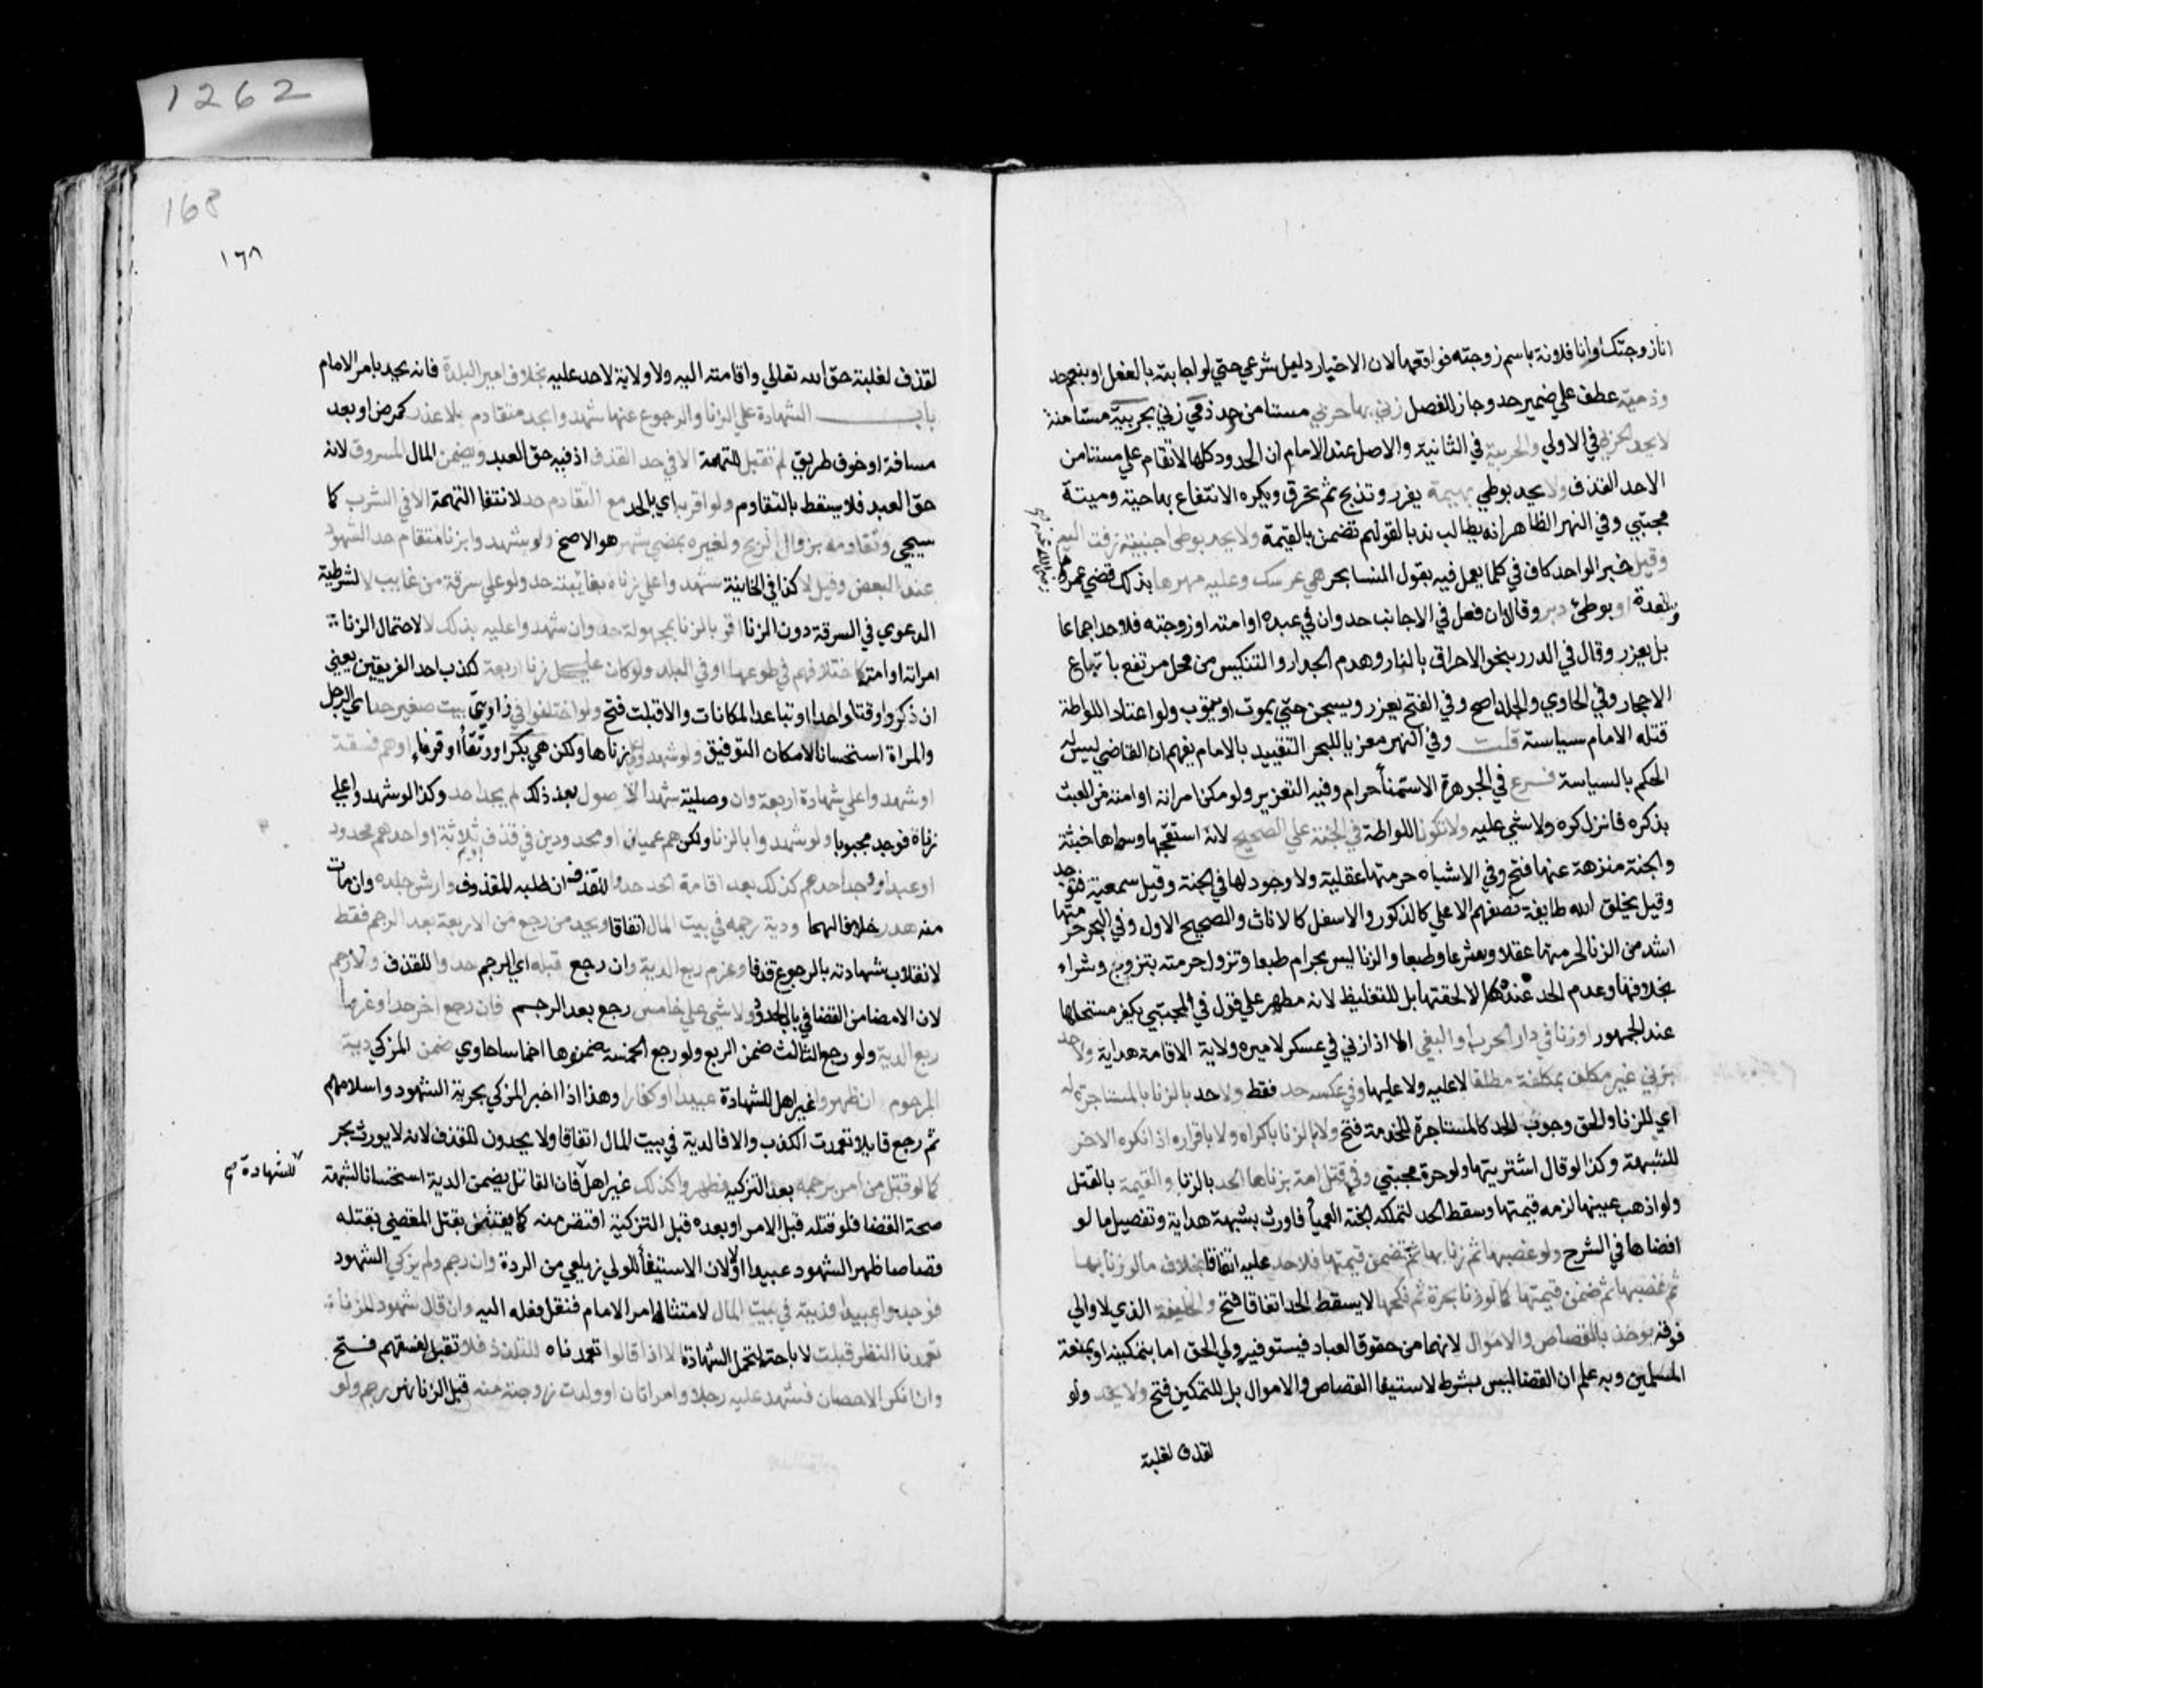 1262
168
١٦٨
انا زوجتك او انا فلانة باسم زوجته فواقعها لان الاخبار دليل شرعي حتي لو اجابته بالفعل او بنعم حد
وذمية عطف علي ضمير حد وجاز للفصل زني بها حربي مستامن حد ذمي زني بحربية مستامنة
لا يحد الحربي في الاولي والحربية في الثانية والاصل عند الامام ان الحدود كلها لا تقام علي مستامن
الا حد القذف ولا يحد بوطي بهيمة يعزر وتذبح ثم تحرق ويكره الانتفاع بها حية وميتة
مجتبي وفي النهر الظاهر انه يطالب ندبا لقولهم تضمن بالقيمة ولا يحد بوطي اجنبية زفت اليه
وقيل خبر الواحد كاف في كلما يعمل فيه بقول النسا بحر هي عرسك وعليه مهرها بذلك قضي عمر
رضي الله عنه صح
وبالعدة او بوطئ دبر وقالا ان فعل في الاجانب حد وان في عبده او امته او زوجته فلا حد اجماعا
بل يعزر وقال في الدرر بنحو الاحراق بالنار وهدم الجدار والتنكيس من محل مرتفع باتباع
الاحجار وفي الحاوي والجلد اصح وفي الفتح يعزر ويسجن حتي يموت او يتوب ولو اعتاد اللواطة
قتله الامام سياسة قلت وفي النهر معزيا للبحر التقييد بالامام يفهم ان القاضي ليس له
الحكم بالسياسة فرع في الجوهرة الاستمنأ حرام وفيه التعزير ولو مكن امراته او امته من العبث
بذكره فانزل كره ولا شي عليه ولا تكون اللواطة في الجنة علي الصحيح لانه استقبحها وسماها خبيثة
والجنة منزهة عنها فتح وفي الاشباه حرمتها عقلية ولا وجود لها في الجنة وقيل سمعية فتوجد
وقيل يخلق الله طايفة نصفهم الاعلي كالذكور والاسفل كالاناث والصحيح الاول وفي البحر حرمتها
اشد من الزنا لحرمتها عقلا وشرعا وطبعا والزنا ليس بحرام طبعا وتزول حرمته بتزوج وشراء
بخلافها وعدم الحد عنده لا لخفتها بل للتغليظ لانه مطهر علي قول في المجتبي يكفر مستحلها
عند الجمهور او زنا في دار الحرب او البغي الا اذا زني في عسكر لاميره ولاية الاقامة هداية ولا حد
بزني غير مكلف بمكلفة مطلقا لا عليه ولا عليها وفي عكسه حد فقط ولا حد بالزنا بالمستاجرة له
اي للزنا والحق وجوب الحد كالمستاجرة للخدمة فتح ولا بالزنا باكراه ولا باقرار ان انكره الاخر
للشبهة وكذا لو قال اشتريتها ولو حرة مجتبي وفي قتل امة بزناها الحد بالزنا والقيمة بالقتل
ولو اذهب عينها لزمه قيمتها وسقط الحد لتملكه الجثة العمياء فاورث شبهة هداية وتفصيل ما لو
افضاها في الشرح ولو غصبها ثم زنا بها ثم ضمن قيمتها فلا حد عليه اتفاقا بخلاف ما لو زنا بها
ثم غصبها ثم ضمن قيمتها كما لو زنا بحرة ثم نكحها لا يسقط الحد اتفاقا فتح والخليفة الذي لا والي
فوقه يوخذ بالقصاص والاموال لانهما من حقوق العباد فيستوفيه ولي الحق اما بتمكينه او بمنعة
المسلمين وبه علم ان القضا ليس بشرط لاستيفا القصاص والاموال بل للتمكين فتح ولا يحد ولو
لقذف لغلبة
لقذف لغلبة حق الله تعالي واقامته اليه ولا ولاية لاحد عليه بخلاف امير البلدة فانه يحد بامر الامام
باب الشهادة علي الزنا والرجوع عنها شهدوا بحد متقادم بلا عذر كمرض او بعد
مسافة او خوف طريق لم تقبل للتهمة الا في حد القذف اذ فيه حق العبد ويضمن المال المسروق لانه
حق العبد فلا يسقط بالتقادم ولو اقر به اي بالحد مع التقادم حد لانتفا التهمة الا في الشرب كما
سيجي وتقادمه بزوال الريح ولغيره بمضي شهر هو الاصح ولو شهدوا بزنا متقادم حد الشهود
عند البعض وقيل لا كذا في الخانية شهدوا علي زناه بغايبة حد ولو علي سرقة من غايب لا لشرطية
الدعوي في السرقة دون الزنا اقر بالزنا بمجهولة حد وان شهدوا عليه بذلك لا لاحتمال انها
امراته او امته كاختلافهم في طوعها او في البلد ولو كان علي كل زنا اربعة لكذب احد الفريقين يعني
ان ذكروا وقتا واحدا او تباعد المكانات والا قبلت فتح ولو اختلفوا في زاويتي بيت صغير حد اي الرجل
والمراة استحسانا لامكان التوفيق ولو شهدوا علي زناها ولكن هي بكر او رتقأ او قرناء او هم فسقة
او شهدوا علي شهادة اربعة وان وصلية شهد الاصول بعد ذلك لم يحد احد وكذا لو شهدوا علي
زناه فوجد مجبوبا ولو شهدوا بالزنا ولكن هم عميان او محدودين في قذف او ثلاثة او احدهم محدود
او عبد او وجد احدهم كذلك بعد اقامة الحد حدوا للقذف ان طلبه المقذوف وارش جلده وان مات
منه هدر خلافا لهما ودية رجمه في بيت المال اتفاقا ويحد من رجع من الاربعة بعد الرجم فقط
لانقلاب شهادته بالرجوع قذفا وغرم ربع الدية وان رجع قبله اي الرجم حدوا للقذف ولا رجم
لان الامضا من القضا في باب الحدود ولا شي علي خامس رجع بعد الرجم فان رجع اخر حدا وغرما
ربع الدية ولو رجع الثالث ضمن الربع ولو رجع الخمسة ضمنوها اخماسا حاوي ضمن المزكي دية
المرجوم ان ظهروا غير اهل للشهادة عبيدا او كفارا وهذا اذا اخبر المزكي بحرية الشهود واسلامهم
ثم رجع قايلا تعمدت الكذب والا فالدية في بيت المال اتفاقا ولا يحدون للقذف لانه لا يورث بحر
كما لو قتل من امر برجمه بعد التزكية فظهروا كذلك غير اهل فان القاتل يضمن الدية استحسانا لشبهة
للشهادة صح
صحة القضا فلو قتله قبل الامر او بعده قبل التزكية اقتص منه كما يقتص بقتل المقضي بقتله
قصاصا ظهر الشهود عبيدا او لا لان الاستيفأ للولي زيلعي من الردة وان رجم ولم يزكي الشهود
فوجدوا عبيدا فديته في بيت المال لامتثاله امر الامام فنقل فعله اليه وان قال شهود الزنا
تعمدنا النظر قبلت لاباحته لتحمل الشهادة الا اذا قالوا تعمدناه للتلذذ فلا تقبل لفسقهم فتح
وان انكر الاحصان فشهد عليه رجل وامراتان او ولدت زوجته منه قبل الزنا نهر رجم ولو